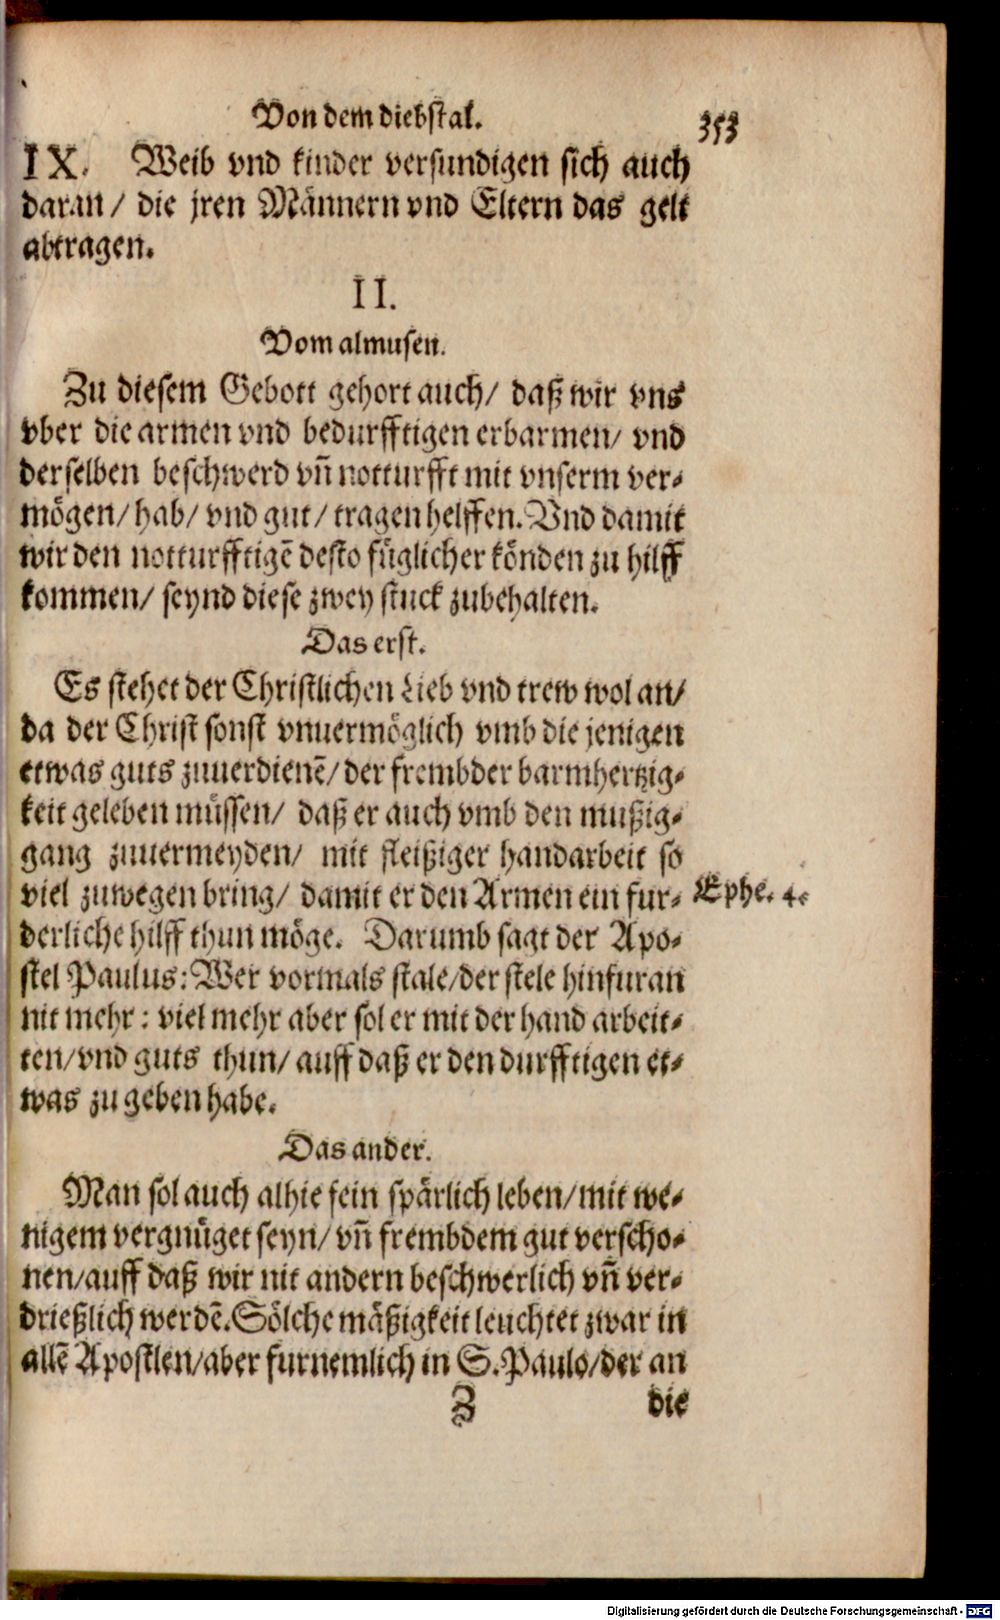 Von dem diebstal.
353
IX. Weib vnd kinder versundigen sich auch
daran / die jren Männern vnd Eltern das gelt
abtragen.
II.
Vom almusen.
Zu diesem Gebott gehort auch / daß wir vns
vber die armen vnd bedurfftigen erbarmen / vnd
derselben beschwerd vñ notturfft mit vnserm ver⸗
mögen / hab / vnd gut / tragen helffen. Vnd damit
wir den notturfftigẽ desto füglicher könden zu hilff
kommen / seynd diese zwey stuck zubehalten.
Das erst.
Es stehet der Christlichen Lieb vnd trew wol an /
da der Christ sonst vnuermöglich vmb die jenigen
etwas guts zuuerdienẽ / der frembder barmhertzig⸗
keit geleben müssen / daß er auch vmb den mußig⸗
gang zuuermeyden / mit fleißiger handarbeit so
viel zuwegen bring / damit er den Armen ein fur⸗
Ephe. 4.
derliche hilff thun möge. Darumb sagt der Apo⸗
stel Paulus: Wer vormals stale / der stele hinfuran
nit mehr : viel mehr aber sol er mit der hand arbeit⸗
ten / vnd guts thun / auff daß er den durfftigen et⸗
was zu geben habe.
Das ander.
Man sol auch alhie fein spärlich leben / mit we⸗
nigem vergnüget seyn / vñ frembdem gut verscho⸗
nen / auff daß wir nit andern beschwerlich vñ ver⸗
drießlich werdẽ. Sölche mäßigkeit leuchtet zwar in
allẽ Apostlen / aber furnemlich in S. Paulo / der an
Z
die
Digitalisierung gefördert durch die Deutsche Forschungsgemeinschaft - DFG